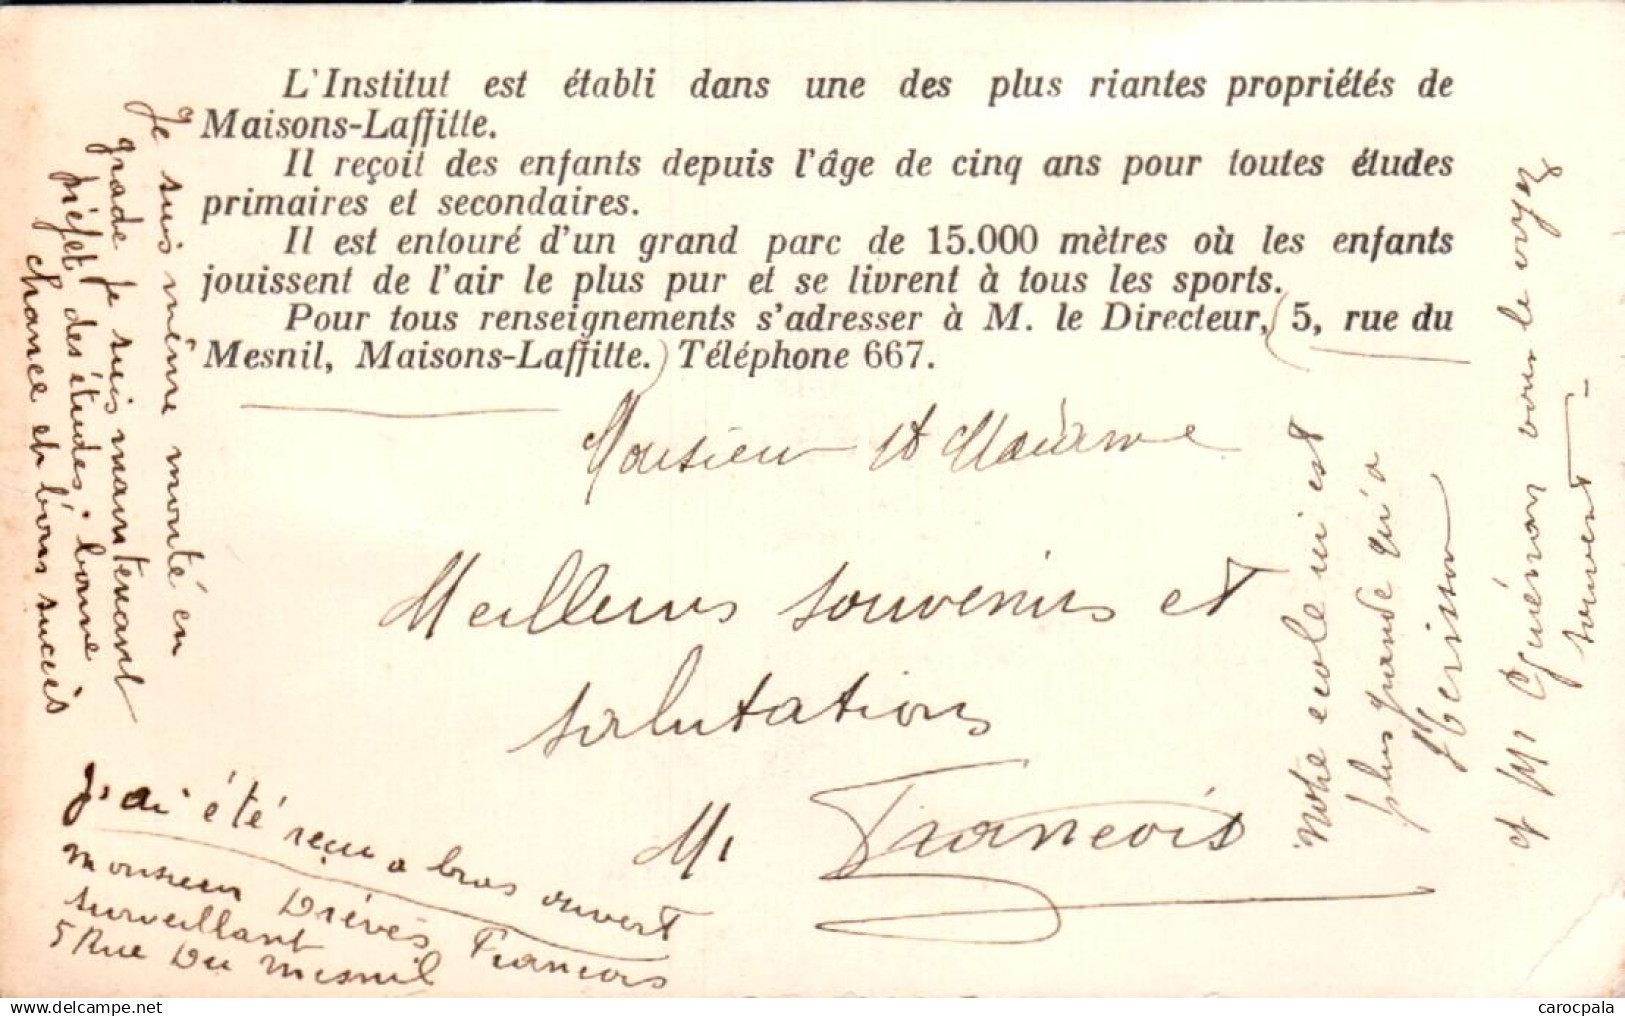 L'Institut est établi dans une des plus riantes propriétés de
Maisons-Laffitte.
Il reçoit des enfants depuis l'âge de cinq ans pour toutes études
primaires et secondaires.
Il est entouré d'un grand parc de 15.000 mètres où les enfants
jouissent de l'air le plus pur et se livrent à tous les sports.
Pour tous renseignements s'adresser à M. le Directeur, (5, rue du
Mesnil, Maisons-Laffitte.) Téléphone 667.
Monsieur et Madame
Meilleurs souvenirs et
salutations
M. François
Je suis même monté en
grade je suis maintenant
préfet des études, bonne
chance et bon succès
j'ai été reçu a bras ouvert
monsieur Drévès François
surveillant
5 Rue Du Mesnil
Notre école ici est
plus grande qu'a
Hérisson
et M. Guénon vous le voyez
souvent -
carocpala